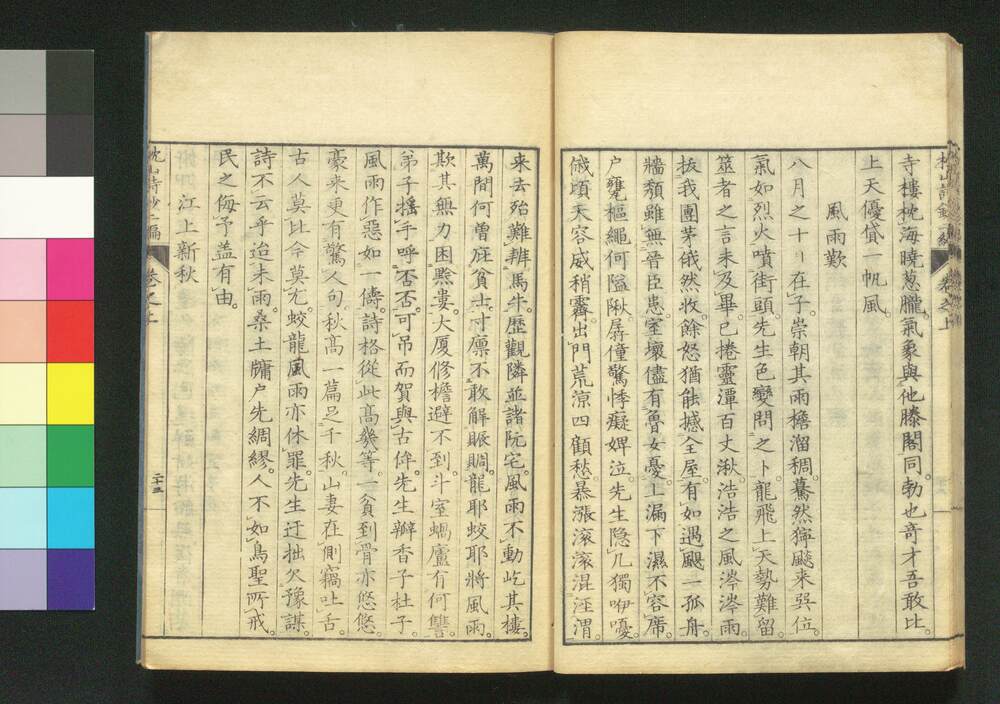 寺樓枕海曉蔥朧。氣象與他滕閣同。勃也奇才吾敢比。
上天優貸一帆風。
風雨歎
八月之十日在子。崇朝其雨檐溜稠。驀然獰飈來巽位。
氣如烈火噴街頭。先生色變問之卜。龍飛上天勢難留。
筮者之言未及畢。已捲靈潭百丈湫。浩浩之風涔涔雨。
拔我團茅俄然收。餘怒猶能撼全屋。有如遇颶一孤舟。
牆頹雖無晉臣患。室壞儘有魯女憂。上漏下濕不容席。
戶甕樞繩何隘陬。孱僮驚悸癡婢泣。先生隱几獨咿嚘。
俄頃天容威稍霽。出門荒涼四顧愁。暴漲滾滾混涇渭。
來去殆難辨馬牛。歷觀隣並諸阮宅。風雨不動屹其樓。
萬間何曾庇貧士。寸廩不敢解賑賙。龍耶蛟耶將風雨。
欺其無力困黔婁。大厦修檐避不到。斗室蝸廬有何讐。
弟子搖手呼否否。可弔而賀與古侔。先生瓣香子杜子。
風雨作惡如一儔。詩格從此高幾等。一貧到骨亦悠悠。
豪來更有驚人句。秋高一篇足千秋。山妻在側竊吐舌。
古人莫比今莫尤。蛟龍風雨亦休罪。先生迂拙欠豫謀。
詩不云乎迨未雨。桑土牖戶先綢繆。人不如鳥聖所戒。
民之侮予蓋有由。
江上新秋
枕山詩鈔二編
卷之上
二十三